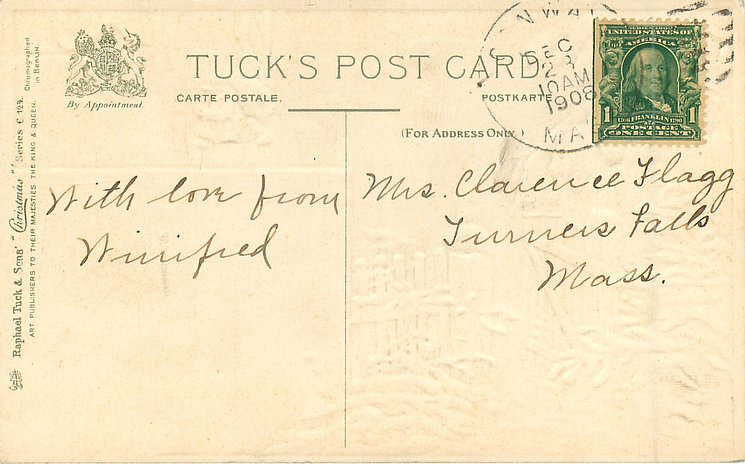 By Appointment.
TUCK'S POST CARD
CARTE POSTALE.
POSTKARTE
(FOR ADDRESS ONLY.)
CONWAY
DEC
23
10AM
1908
MA
SERIES 1902
UNITED STATES OF
AMERICA
1706 FRANKLIN 1790
1 POSTAGE 1
ONE CENT
With love from
Winifred
Mrs. Clarence Flagg
Turners Falls
Mass.
Raphael Tuck & Sons' "Christmas" Series C 125.
ART PUBLISHERS TO THEIR MAJESTIES THE KING & QUEEN.
Chromographed
in BERLIN.